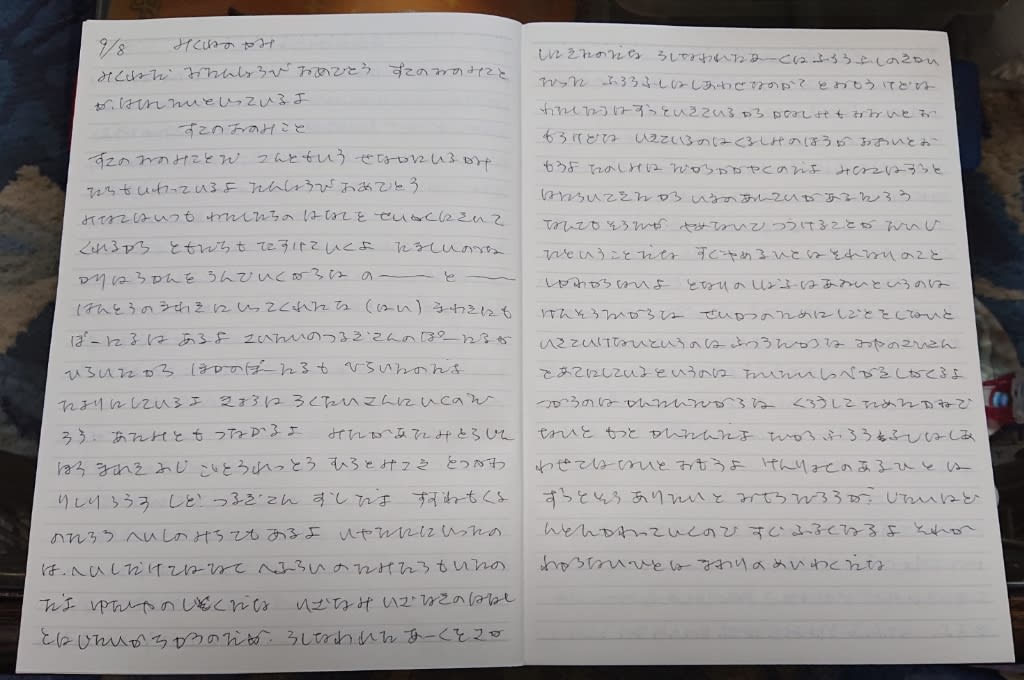 9/8 みくはのかみ
みくはだ おたんじょうび おめでとう すさのおのみこと
が、はなしたいといっているよ
すさのおのみこと
すさのおのみことだ こんともいう せなかにいるかみ
たちもいわっているよ たんじょうび おめでとう
みなこはいつも わたしたちの はなしを せいかくにきいて
くれるから ともたちも たすけていくよ たましいのなか
かりはらかんを うんでいくからな の―――と―――
はんとうの まわきに いってくれたな (はい) まわきにも
ぽーたるは あるよ こいたいのつるぎさんの ぽーたるが
ひらいたから ほかのぽーたるも ひらいたのだよ
たよりにしているよ きょうは ろくたいさんにいくのだ
ろう。あたみとも つながるよ みたが あたみ とうしん
ほう まれき おじ ことうれっとう むろとみさき とっかわ
りしりろうす しど、つるぎさん すしだよ すずねもくる
のだろう へいしのみちでもあるよ いやだににいったの
は、へいしだけではなくて へぶらいのたみたちもいたの
だよ ゆだやのしぞくだな いざなみ いざなきのはなし
とはじだいがちがうのだが、うしなわれたあーくをさが
しにきたのだな うしなわれたあーくは ふろうふしのせかい
だった ふろうふしは しあわせなのか？とおもうけどな
わたしたちは ずっといきているから かなしみも おおいとお
もうけどな いきているのは くるしみのほうが おおいとお
もうよ たのしみは だからかがやくのだよ みなこはずっと
はたらいてきたから いまのあんていがあるだろう
なんでもそうだが やめないで つづけることが だいじ
だということだな すぐやめるひとは それなりのこと
しかわからないよ となりのしばふは あおいというのは
げんそうだからな せいかつのために しごとをしないと
いきていけないというのは ふつうだからな おやのざいさん
をあてにしているというのは たいたいしっぺがえしがくるよ
つかうのは かんたんだからな くろうしてためたかねで
ないと もっと かんたんだよ だから ふろうふしは しあ
わせではないと おもうよ けんりょくのあるひとは
ずっとそうありたいと おもうだろうが、じだいはど
んどんかわっていくので すぐふるくなるよ それが
わからないひとは まわりのめいわくだな